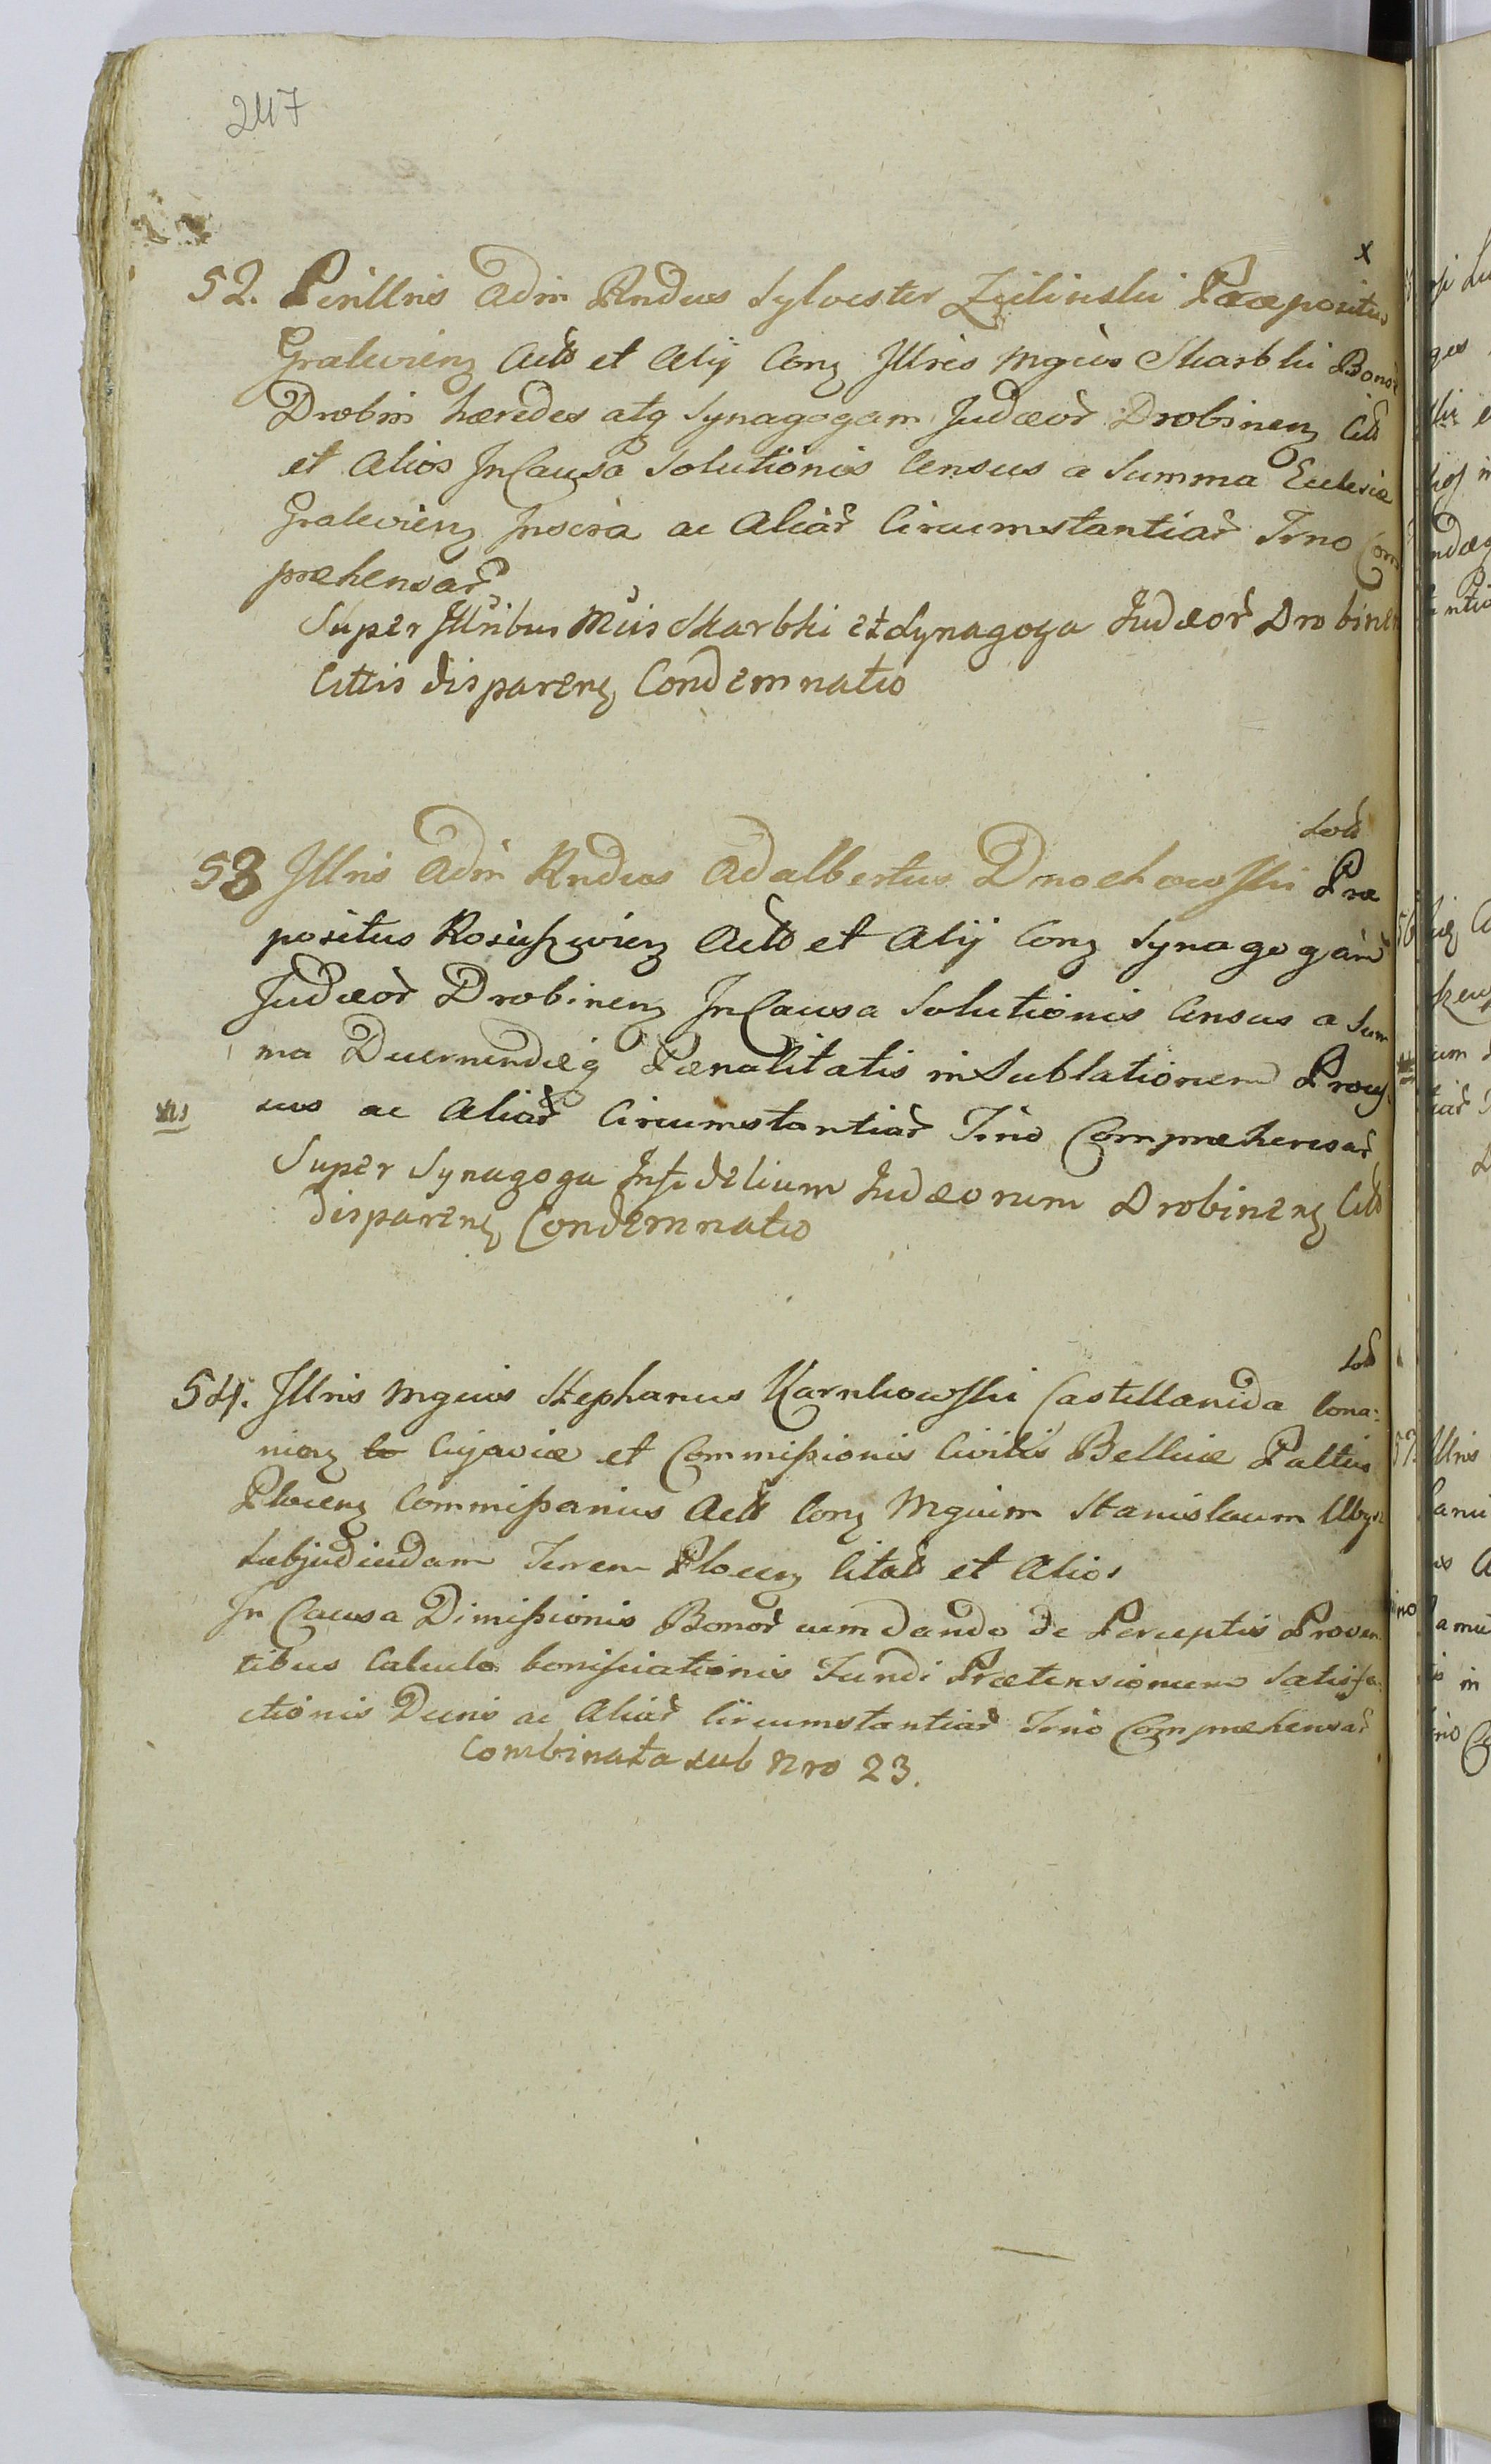 247
x
52. Perillris Adm Rndus Sylvester Zieliński Præpositus
Gralevienz Actt et Alij Conz Illres Mgcos Skarbki Bonor
Drobin hæredes atq Synagogam Judæor Drobinenz Citt
et Alios In Causa Solutionis Census a Summa Ecclesiæ
Gralevienz Inscra ac Aliar Circumstantiar Trno Com
præhensar
Super Illribus Mcis Skarbki et Synagoga Judæor Drobinen
Cittis disparenz Condemnatio
Sod
53 Illris Adm Rndus Adalbertus Dmochowski Præ
positus Rosiszewienz Actt et Alij Conz Synagogam
Judæor Drobinenz In Causa Solutionis Census a Sum
ma Pænalitatis in Sublationem Proces
sus ac Aliar Circumstantiar Trno Compræhensar
Super Synagoga Infidelium Judæorum Drobinenz Citt
disparenz Condemnatio
Sod
54. Illris Mgcus Stephanus Karnkowski Castellanida Cona:
rienz Cujaviæ et Commissionis Civilis Bellicæ Paltus
Plocenz Commissarius Actt Conz Mgcum Stanislaum
Subjudicidam Terrem Plocenz Citat et Alios
In Causa Dimissionis Bonor cum dando de Perceptis Proven
tibus Calculo bonificationis Fundi Prætensionum Satisfa
ctionis Decris ac Aliar Circumstantiar Trno Compræhensar
Combinata sub Nro 23.